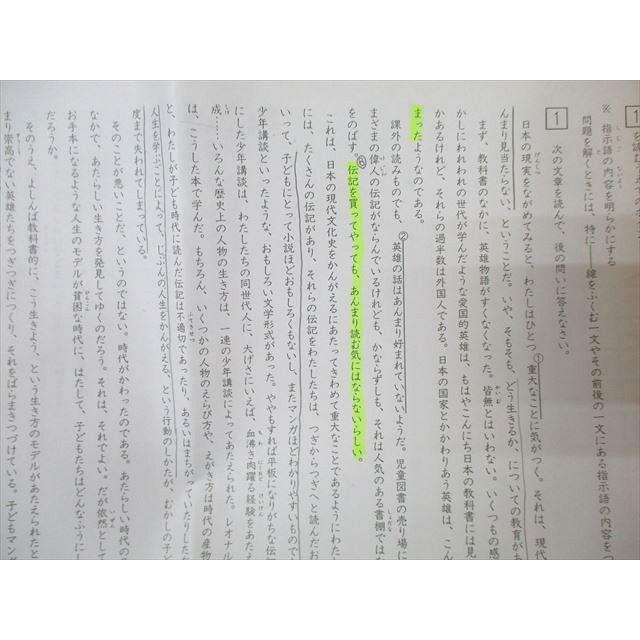 ※ 指示語の内容を明らかにする
問題を解くときには、特に――線をふくむ一文やその前後の一文にある指示語の内容をつ
1
次の文章を読んで、後の問いに答えなさい。
日本の現実をながめてみると、わたしはひとつ①重大なことに気がつく。それは、現代
んまり見当たらない、ということだ。いや、そもそも、どう生きるか、についての教育が
まず、教科書のなかに、英雄物語がすくなくなった。皆無とはいわない。いくつもの感
かしにわれわれの世代が学んだような愛国的英雄は、もはやこんにち日本の教科書には見
かあるけれど、それらの過半数は外国人である。日本の国家とかかわりあう英雄は、こん
まったようなのである。
課外の読みものでも、②英雄の話はあんまり好まれていないようだ。児童図書の売り場に
まざまの偉人の伝記がならんでいるけれども、かならずしも、それは人気のある書棚ではな
をのばす。⑥伝記を買ってやっても、あんまり読む気にはならないらしい。
これは、日本の現代文化史をかんがえるにあたってきわめて重大なことであるようにわた
には、たくさんの伝記があり、それらの伝記をわたしたちは、つぎからつぎへと読んだお
いって、子どもにとって小説ほどおもしろくもないし、またマンガほどわかりやすいもので
少年講談といったような、おもしろい文学形式があった。ややもすれば平板になりがちな伝
にした少年講談は、わたしたちの同世代人に、大げさにいえば、血沸き肉躍る経験をあたえ
成……いろんな歴史上の人物の生き方は、一連の少年講談によってあたえられた。レオナル
は、こうした本で学んだ。もちろん、いくつかの人物のえらび方や、えがき方は時代の産物
と、わたしが子ども時代に読んだ伝記は不適切であったり、あるいはまちがっていたりし
人生を学ぶことによって、じぶんの人生をかんがえる、という行動のしかたが、おかしの子ど
度まで失われてしまっている。
そのことが悪いことだ、というのではない。時代がかわったのである。あたらしい時代の
なかで、あたらしい生き方を発見してゆくのだろう。それは、それでよい。だが依然として
お手本になるような人生のモデルが貧困な時代に、はたして、子どもたちはどんなふうにし
だろうか。
そのうえ、よしんば教科書的に、こう生きよう、という生き方のモデルがあたえられたと
まり崇高でない英雄たちをつぎつぎにつくり、それをばらまきつづけている。子どもマンガ